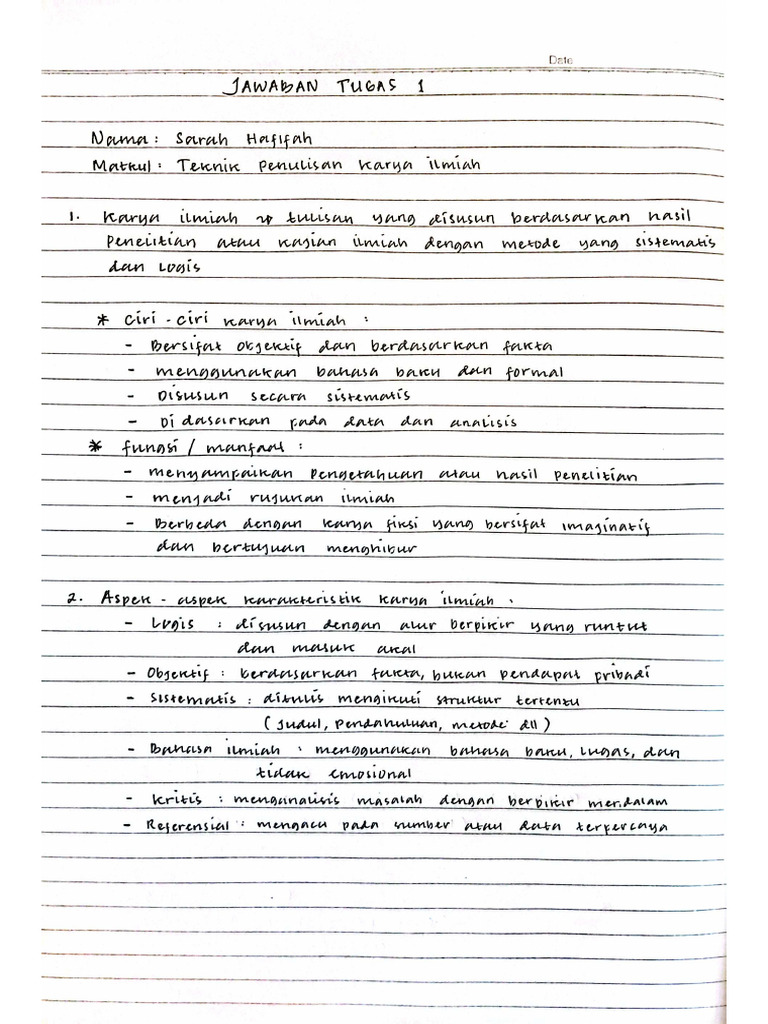 Date
JAWABAN TUGAS 1
Nama : Sarah Hafifah
Matkul : Teknik Penulisan Karya ilmiah
1. Karya ilmiah → tulisan yang disusun berdasarkan hasil
penelitian atau kajian ilmiah dengan metode yang sistematis
dan logis
* Ciri - ciri karya ilmiah :
- Bersifat objektif dan berdasarkan fakta
- menggunakan bahasa baku dan formal
- Disusun secara sistematis
- Di dasarkan pada data dan analisis
* fungsi / manfaat :
- menyampaikan pengetahuan atau hasil penelitian
- menjadi rujukan ilmiah
- Berbeda dengan karya fiksi yang bersifat imaginatif
dan bertujuan menghibur
2. Aspek - aspek karakteristik karya ilmiah .
- Logis : disusun dengan alur berpikir yang runtut
dan masuk akal
- Objektif : berdasarkan fakta, bukan pendapat pribadi
- Sistematis : ditulis mengikuti struktur tertentu
( Judul, Pendahuluan, metode dll )
- Bahasa ilmiah : menggunakan bahasa baku, lugas, dan
tidak emosional
- Kritis : menganalisis masalah dengan berpikir mendalam
- Referensial : mengacu pada sumber atau data terpercaya